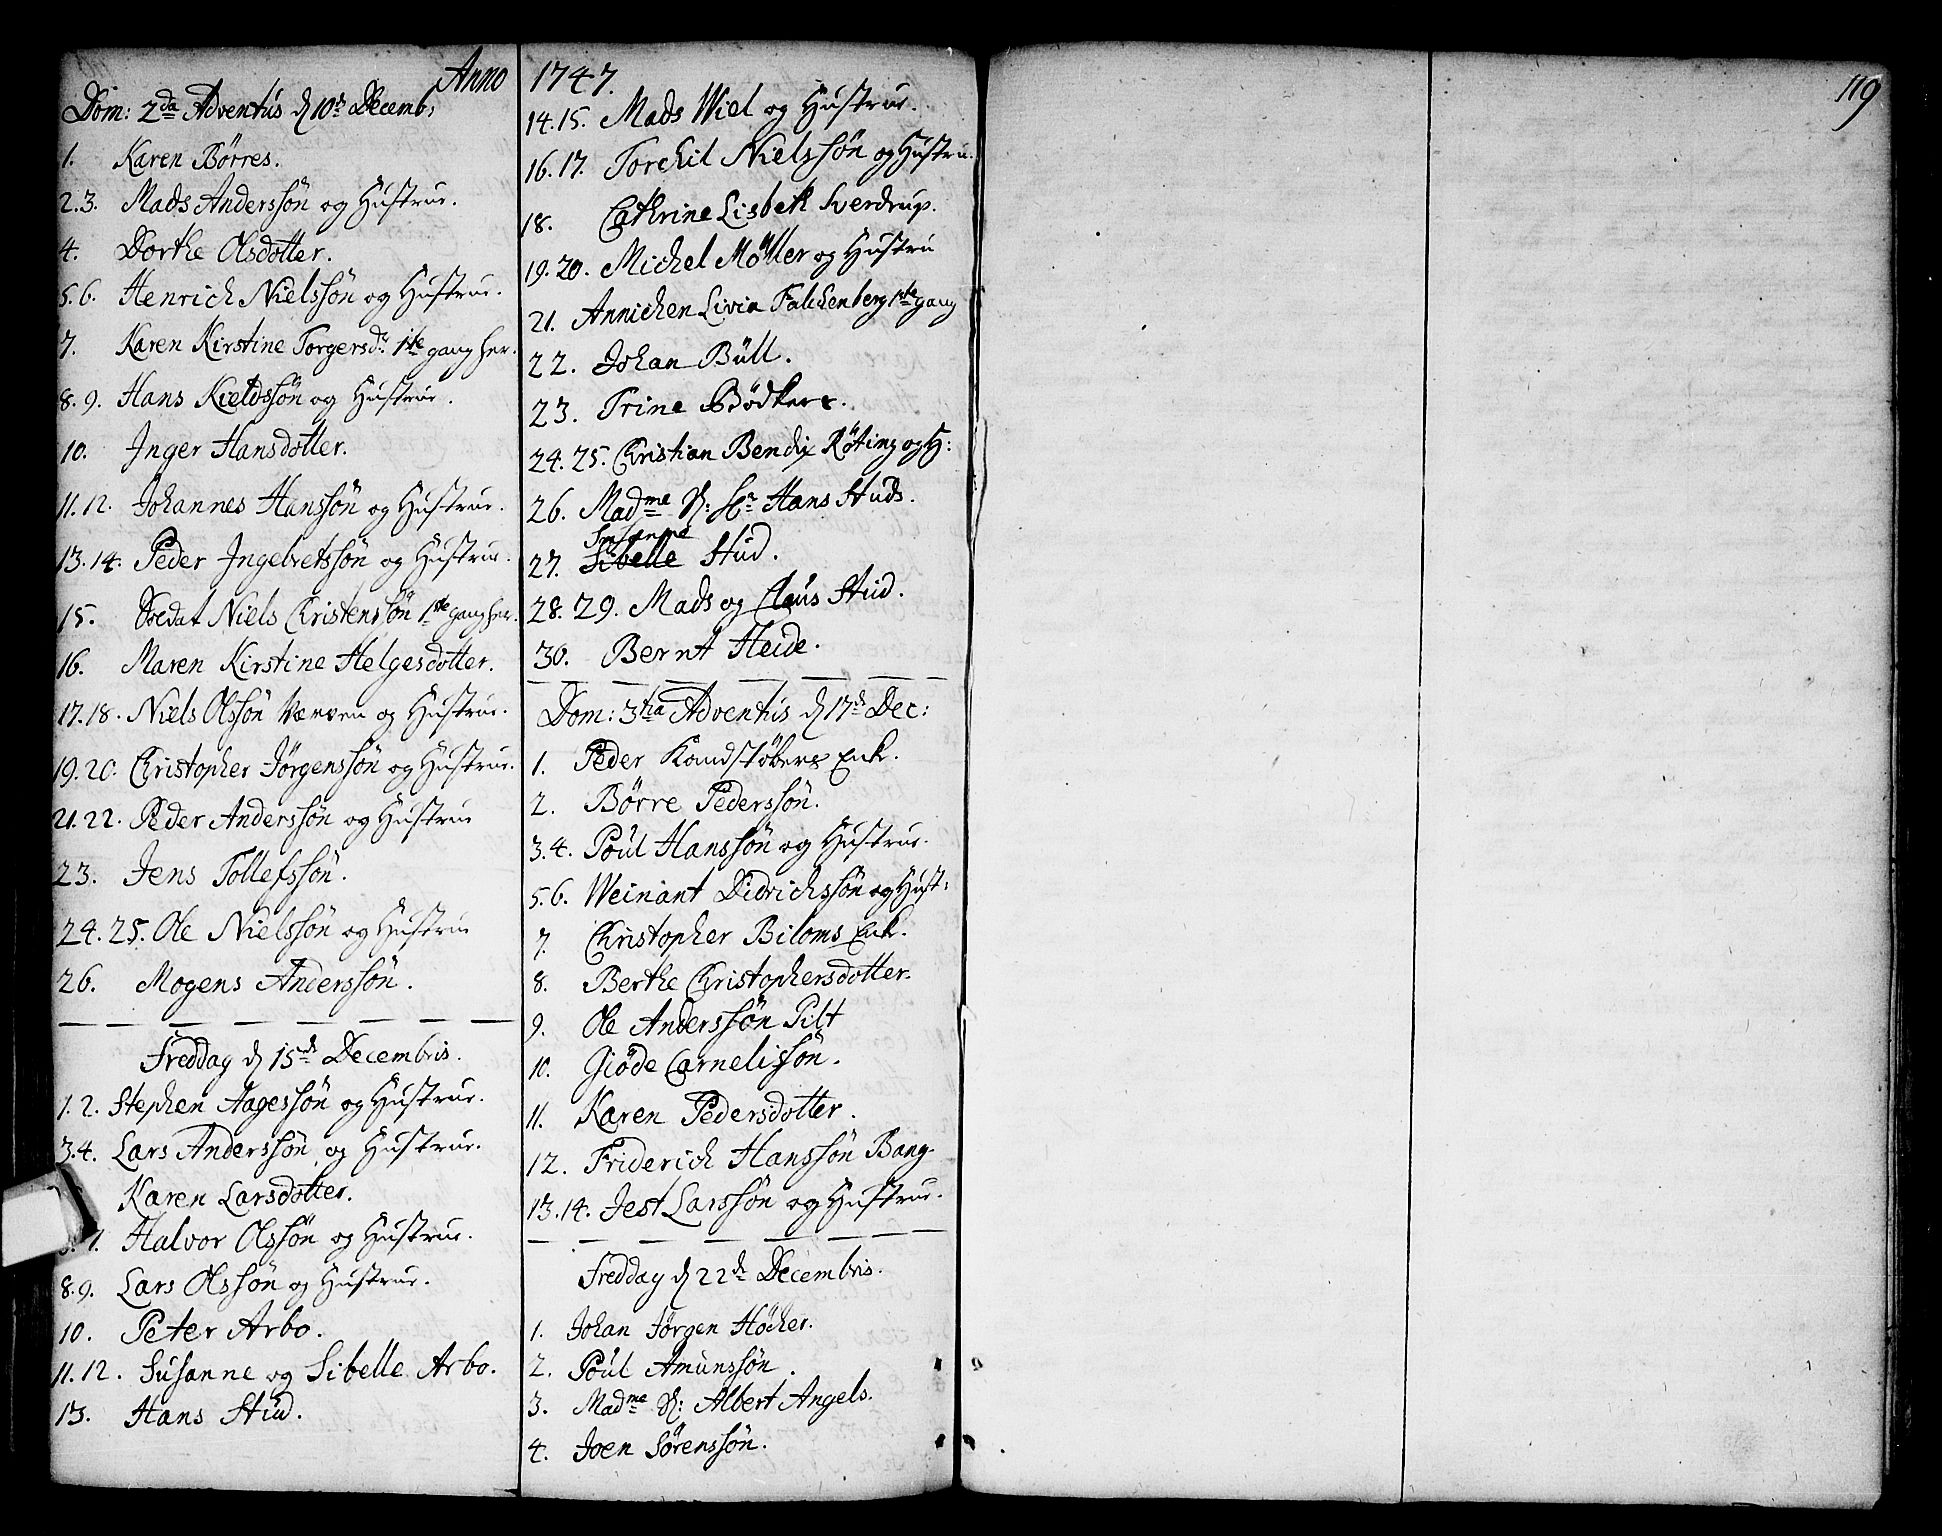 Anno 1747.
Dom: 2da Adventûs d 10de Decemb:
1. Karen Börres.
2.3. Mads Anderssön og Hustrue.
4. Dorthe Olsdotter.
5.6. Henrich Nielssön og Hustrue.
7. Karen Kirstine Torgersdr 1ste gang her.
8.9. Hans Kieldssön og Hustrue.
10. Inger Hansdotter.
11.12. Johannes Hanssön og Hustrue.
13.14. Peder Ingebretssön og Hustrue.
15. Soldat Niels Christenssön 1ste gang her.
16. Maren Kirstine Helgesdotter.
17.18. Niels Olssön Værven og Hustrue.
19.20. Christopher Jörgenssön og Hustrue.
21.22. Peder Anderssön og Hustrue
23. Jens Tollefssön.
24.25. Ole Nielssön og Hustrue
26. Mogens Anderssön.
Freddag d 15de Decembris.
1.2. Stephen Aagessön og Hustrue.
3.4. Lars Anderssön og Hustrue.
Karen Larsdotter.
Halvor Olssön og Hustrue.
8.9. Lars Olssön og Hustrue.
10. Peter Arbo.
11.12. Susanne og Sibelle Arbo.
13. Hans Stûd.
14.15. Mads Wiel og Hustrue.
16.17. Torchil Nielssön og Hustru.
18. Cathrine Lisbek Sverdrup.
19.20. Michel Möller og Hustru
21. Annichen Livia Falchenberg 1ste gang
22. Johan Bûll.
23. Trine Bödkers.
24.25. Christian Bendix Röting og H:
26. Madme S: Hr Hans Stûds.
Susanne
27. Sibelle Stûd.
28.29. Mads og Claus Stûd.
30. Bernt Heide.
Dom: 3tia Adventûs d 17de Dec:
1. Peder Kandstöbers Enk.
2. Börre Pederssön.
3.4. Poûl Hanssön og Hustrue.
5.6. Weinant Didrichssön og Hust:
7. Christopher Biloms Enk.
8. Berthe Christophersdotter.
9. Ole Anderssön Pilt
10. Giöde Cornelissön.
11. Karen Pedersdotter.
12. Friderich Hanssön Bang.
13.14. Jest Larssön og Hustrue.
Freddag d 22de Decembris.
1. Johan Jörgen Höcher.
2. Poûl Amûnssön.
3. Madme S: Albert Angels.
4. Joen Sörenssön.
119